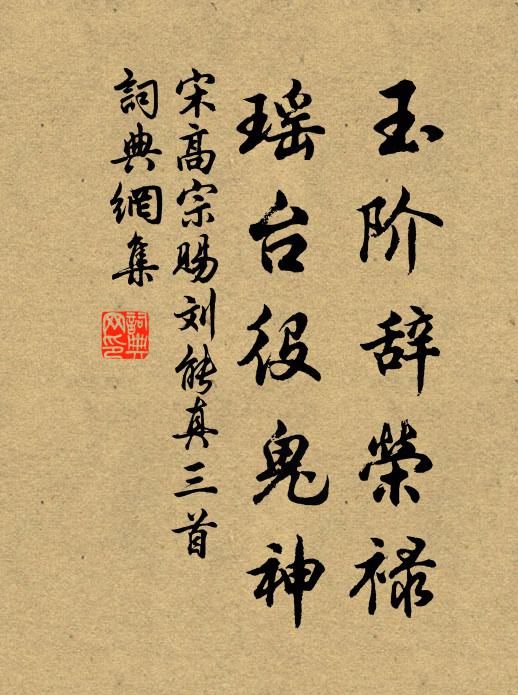 玉阶辞荣禄
瑶台役鬼神
宋高宗赐刘能真三首
詞典網集
詞典
网印